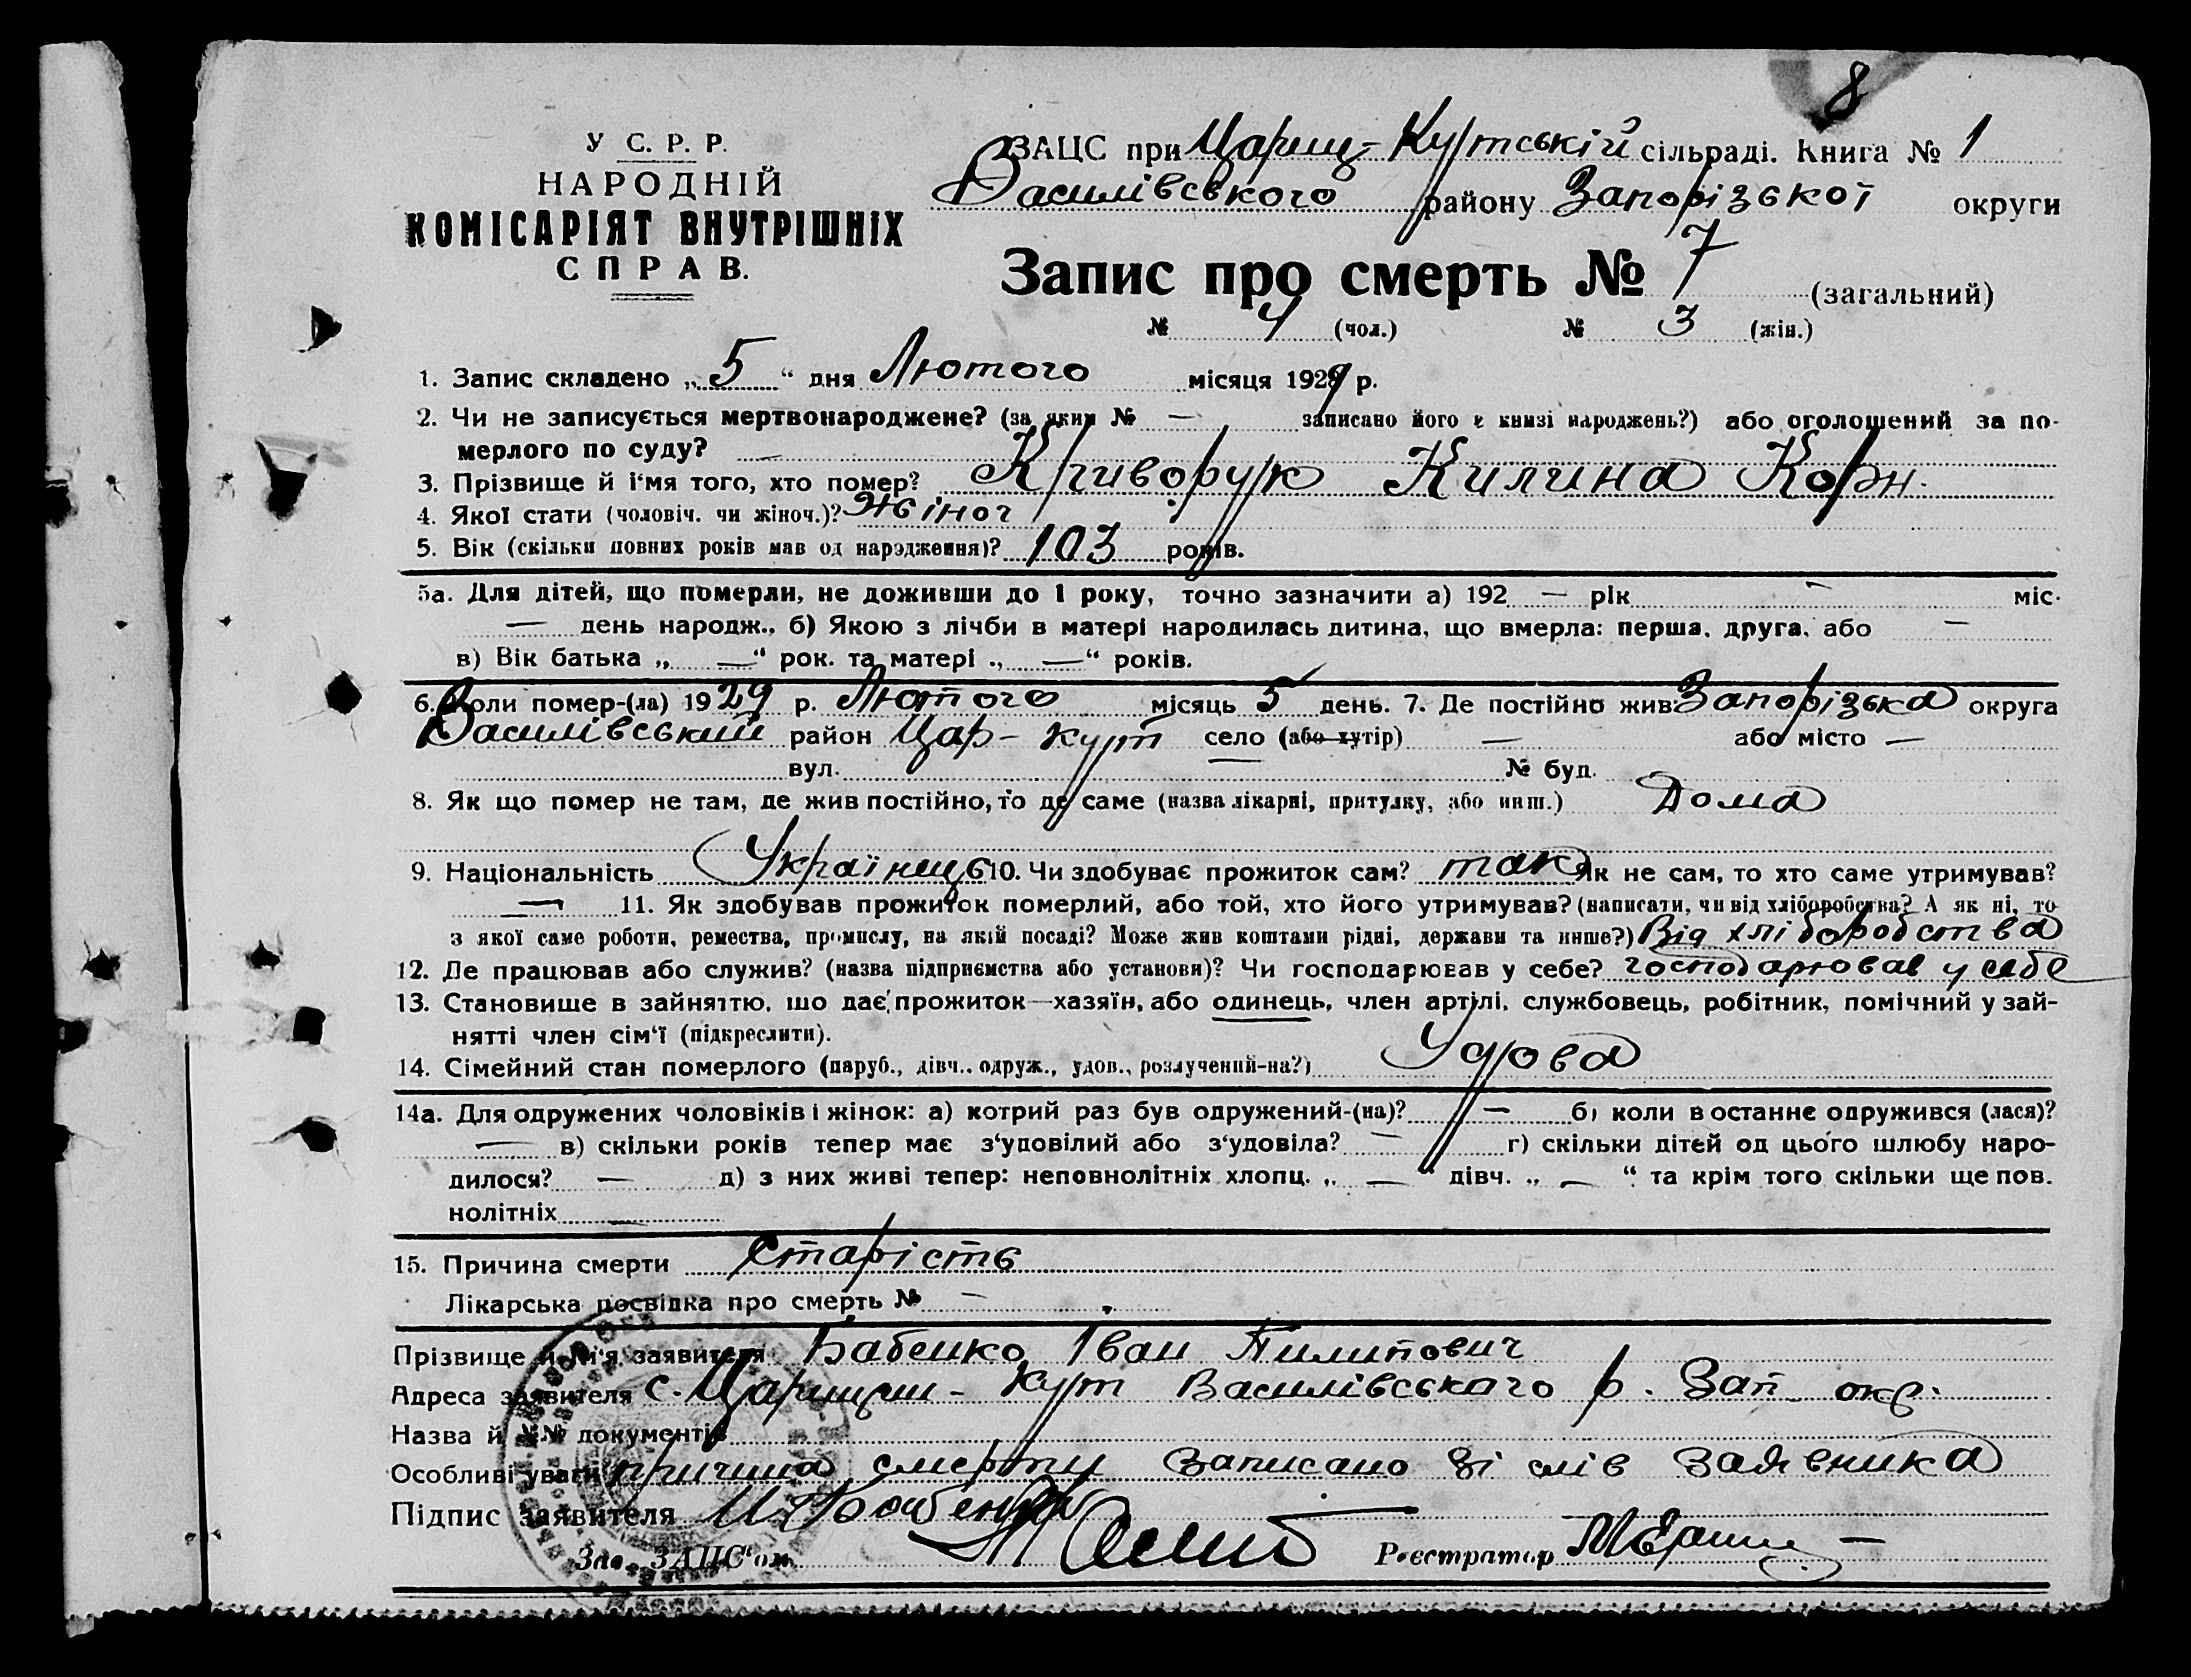 8
У С. Р. Р.
НАРОДНІЙ
КОМІСАРІЯТ ВНУТРІШНІХ
СПРАВ.
ЗАЦС при Цариц-Куртській сільраді. Книга № 1
Василівського району Запорізької округи
Запис про смерть № 7 (загальний)
№ 4 (чол.) № 3 (жін.)
1. Запис складено „ 5 “ дня Лютого місяця 1929 р.
2. Чи не записується мертвонароджене? (за яким № — записано його в книзі народжень?) або оголошений за по-
мерлого по суду? —
3. Прізвище й і'мя того, хто помер? Криворук Килина Корн.
4. Якої стати (чоловіч. чи жіноч.)? Жіноч
5. Вік (скільки повних років мав од народження)? 103 років.
5а. Для дітей, що померли, не доживши до 1 року, точно зазначити а) 192 — рік — міс.
— день народж., б) Якою з лічби в матері народилась дитина, що вмерла: перша, друга, або —
в) Вік батька „ — “ рок. та матері „ — “ років.
6. Коли помер-(ла) 1929 р. Лютого місяць 5 день. 7. Де постійно жив Запорізька округа
Василівський район Цар-Курт село (або хутір) — або місто —
вул. № буд.
8. Як що помер не там, де жив постійно, то де саме (назва лікарні, притулку, або инш.) Дома
9. Національність Українць 10. Чи здобуває прожиток сам? так Як не сам, то хто саме утримував?
— 11. Як здобував прожиток померлий, або той, хто його утримував? (написати, чи від хліборобства? А як ні, то
з якої саме роботи, ремества, промислу, на якій посаді? Може жив коштами рідні, держави та инше?) Від хліборобства
12. Де працював або служив? (назва підприємства або установи)? Чи господарював у себе? господарював у себе
13. Становище в зайняттю, що дає прожиток—хазяїн, або одинець, член артілі, службовець, робітник, помічний у зай-
нятті член сім'ї (підкреслити).
14. Сімейний стан померлого (паруб., дівч., одруж., удов., розлучений-на?) Удова
14а. Для одружених чоловіків і жінок: а) котрий раз був одружений-(на)? — б) коли востаннє одружився (лася)?
— в) скільки років тепер має з'удовілий або з'удовіла? — г) скільки дітей од цього шлюбу наро-
дилося? — д) з них живі тепер: неповнолітніх хлопц. „ — “ дівч. „ — “ та крім того скільки ще пов.
нолітніх —
15. Причина смерти Старість
Лікарська посвідка про смерть № —
Прізвище й ім'я заявителя Бабенко Іван Пилипович
Адреса заявителя с. Царицин-Курт Василівського р. Зап. окр.
Назва й №№ документів
Особливі уваги причина смерти записано зі слів заявника
Підпис заявителя И Бабенко
Зав. ЗАЦС'ом Реєстратор